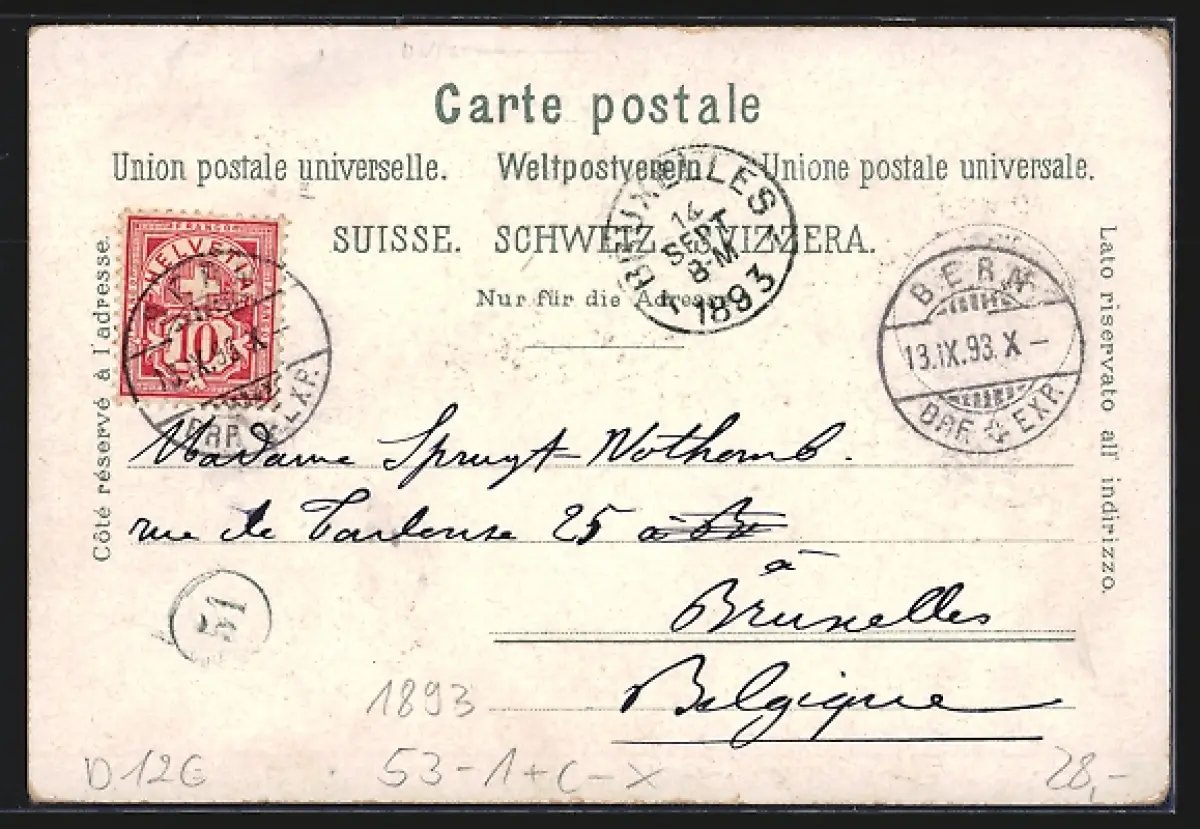 Carte postale
Union postale universelle. Weltpostverein. Unione postale universale.
SUISSE. SCHWEIZ. SVIZZERA.
Nur für die Adresse.
Côté réservé à l'adresse.
Lato riservato all' indirizzo.
FRANCO
HELVETIA
10
13.IX.93.X
BRF. EXP.
BRUXELLES 1
14
SEPT
8-M
1893
BERN
13.IX.93.X –
BRF. EXP.
Madame Spruyt-Nothomb.
rue de Toulouse 25 à Br
à
Bruxelles
Belgique
51
1893
D12G
53-1+C-X
28,-